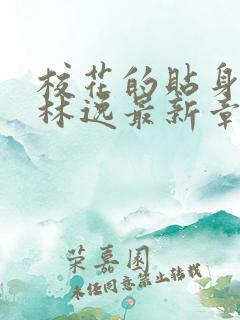 校花的贴身
林逸最新章
荣嘉园
未经同意禁止转载